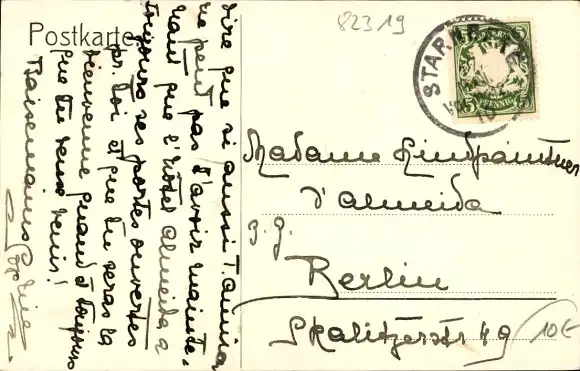 Postkarte.
82319
STARNBERG
5 PFENNIG 5
dire que si aussi T. Annina
ne peut pas t'avoir mainte-
nant que l'hôtel Almeida a
toujours ses portes ouvertes
pr. toi et que tu seras la
bienvenue quand et toujours
que tu veux venir!
Baisemains
Madame Lindpaintner
d'Almeida
z. Z.
Berlin
Skalitzerstr 49
10€